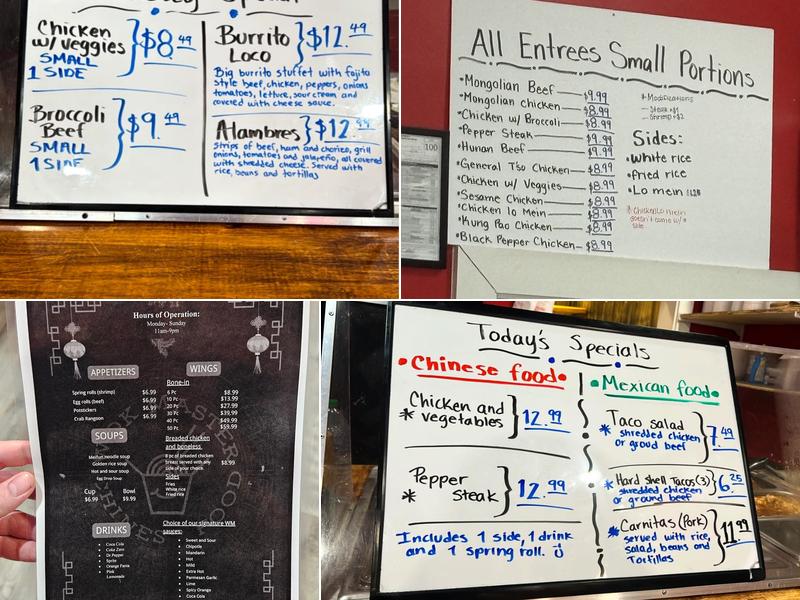 Chicken
w/ veggies
SMALL
1 SIDE
$8.49
Broccoli
Beef
SMALL
1 SIDE
$9.49
Burrito
LOCO
$12.49
Big burrito stuffet with fajita
style beef, chicken, peppers, onions
tomatoes, lettuce, sour cream and
covered with cheese sauce.
Alambres
$12.
Strips of beef, ham and chorizo, grill
onions, tomatoes and jalapeño, all covered
with shredded cheese. Served with
rice, beans and tortillas
All Entrees Small Portions
•Mongolian Beef $9.99
•Mongolian chicken $8.99
•Chicken w/ Broccoli $8.99
•Pepper Steak $9.99
•Hunan Beef $9.99
•General Tso Chicken $8.99
•Chicken w/ Veggies $8.99
•Sesame Chicken $8.99
•Chicken lo Mein $8.99
•Kung Pao Chicken $8.99
•Black Pepper Chicken $8.99
* Modifications
— Steak +$1
— Shrimp +$2
Sides:
•White rice
•Fried rice
•Lo mein
* Chicken Lo mein
doesn't come w/ a
side
100
Hours of Operation:
Monday- Sunday
11am-9pm
APPETIZERS
Spring rolls (shrimp) $6.99
Egg rolls (beef) $6.99
Potstickers $6.99
Crab Rangoon $6.99
SOUPS
noodle soup
Golden rice soup
Hot and sour soup
Egg Drop Soup
Cup Bowl
$6.99 $9.99
DRINKS
• Coca Cola
• Coke Zero
• Dr.Pepper
• Sprite
• Orange Fanta
• Pink
Lemonade
WINGS
Bone-in
6 Pc $8.99
10 Pc $13.99
20 Pc $27.99
30 Pc $39.99
40 Pc $49.99
50 Pc $59.99
Breaded chicken
and boneless
8 pc of breaded chicken
breast served with any
side of your choice. $8.99
Sides
Fries
White rice
Fried rice
Choice of our signature WM
sauces:
• Sweet and Sour
• Chipotle
• Mandarin
• Hot
• Mild
• Extra Hot
• Parmesan Garlic
• Lime
• Spicy Orange
• Coca Cola
Today's Specials
•Chinese food•
Chicken and
* vegetables
12.99
Pepper
* Steak
12.99
Includes 1 side, 1 drink
and 1 spring roll.
•Mexican food•
Taco salad
* shredded chicken
or groud beef
7.49
Hard shell Tacos (3)
* shredded chicken
or ground beef
6.25
Carnitas (Pork)
* served with rice,
salad, beans and
Tortillas
11.99